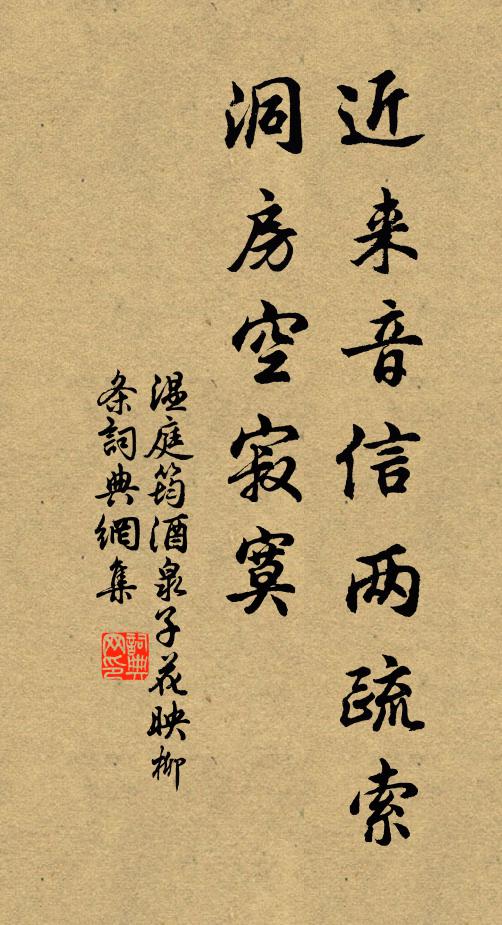 近来音信两疏索
洞房空寂寞
温庭筠酒泉子花映柳
条詞典網集
詞典网印